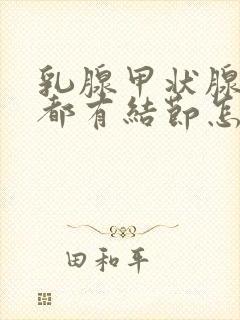 乳腺甲状腺
都有結節怎
田和平